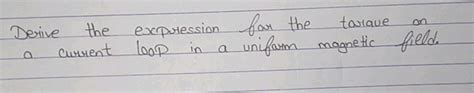 Derive the expression for the torque on
a current loop in a uniform magnetic field.